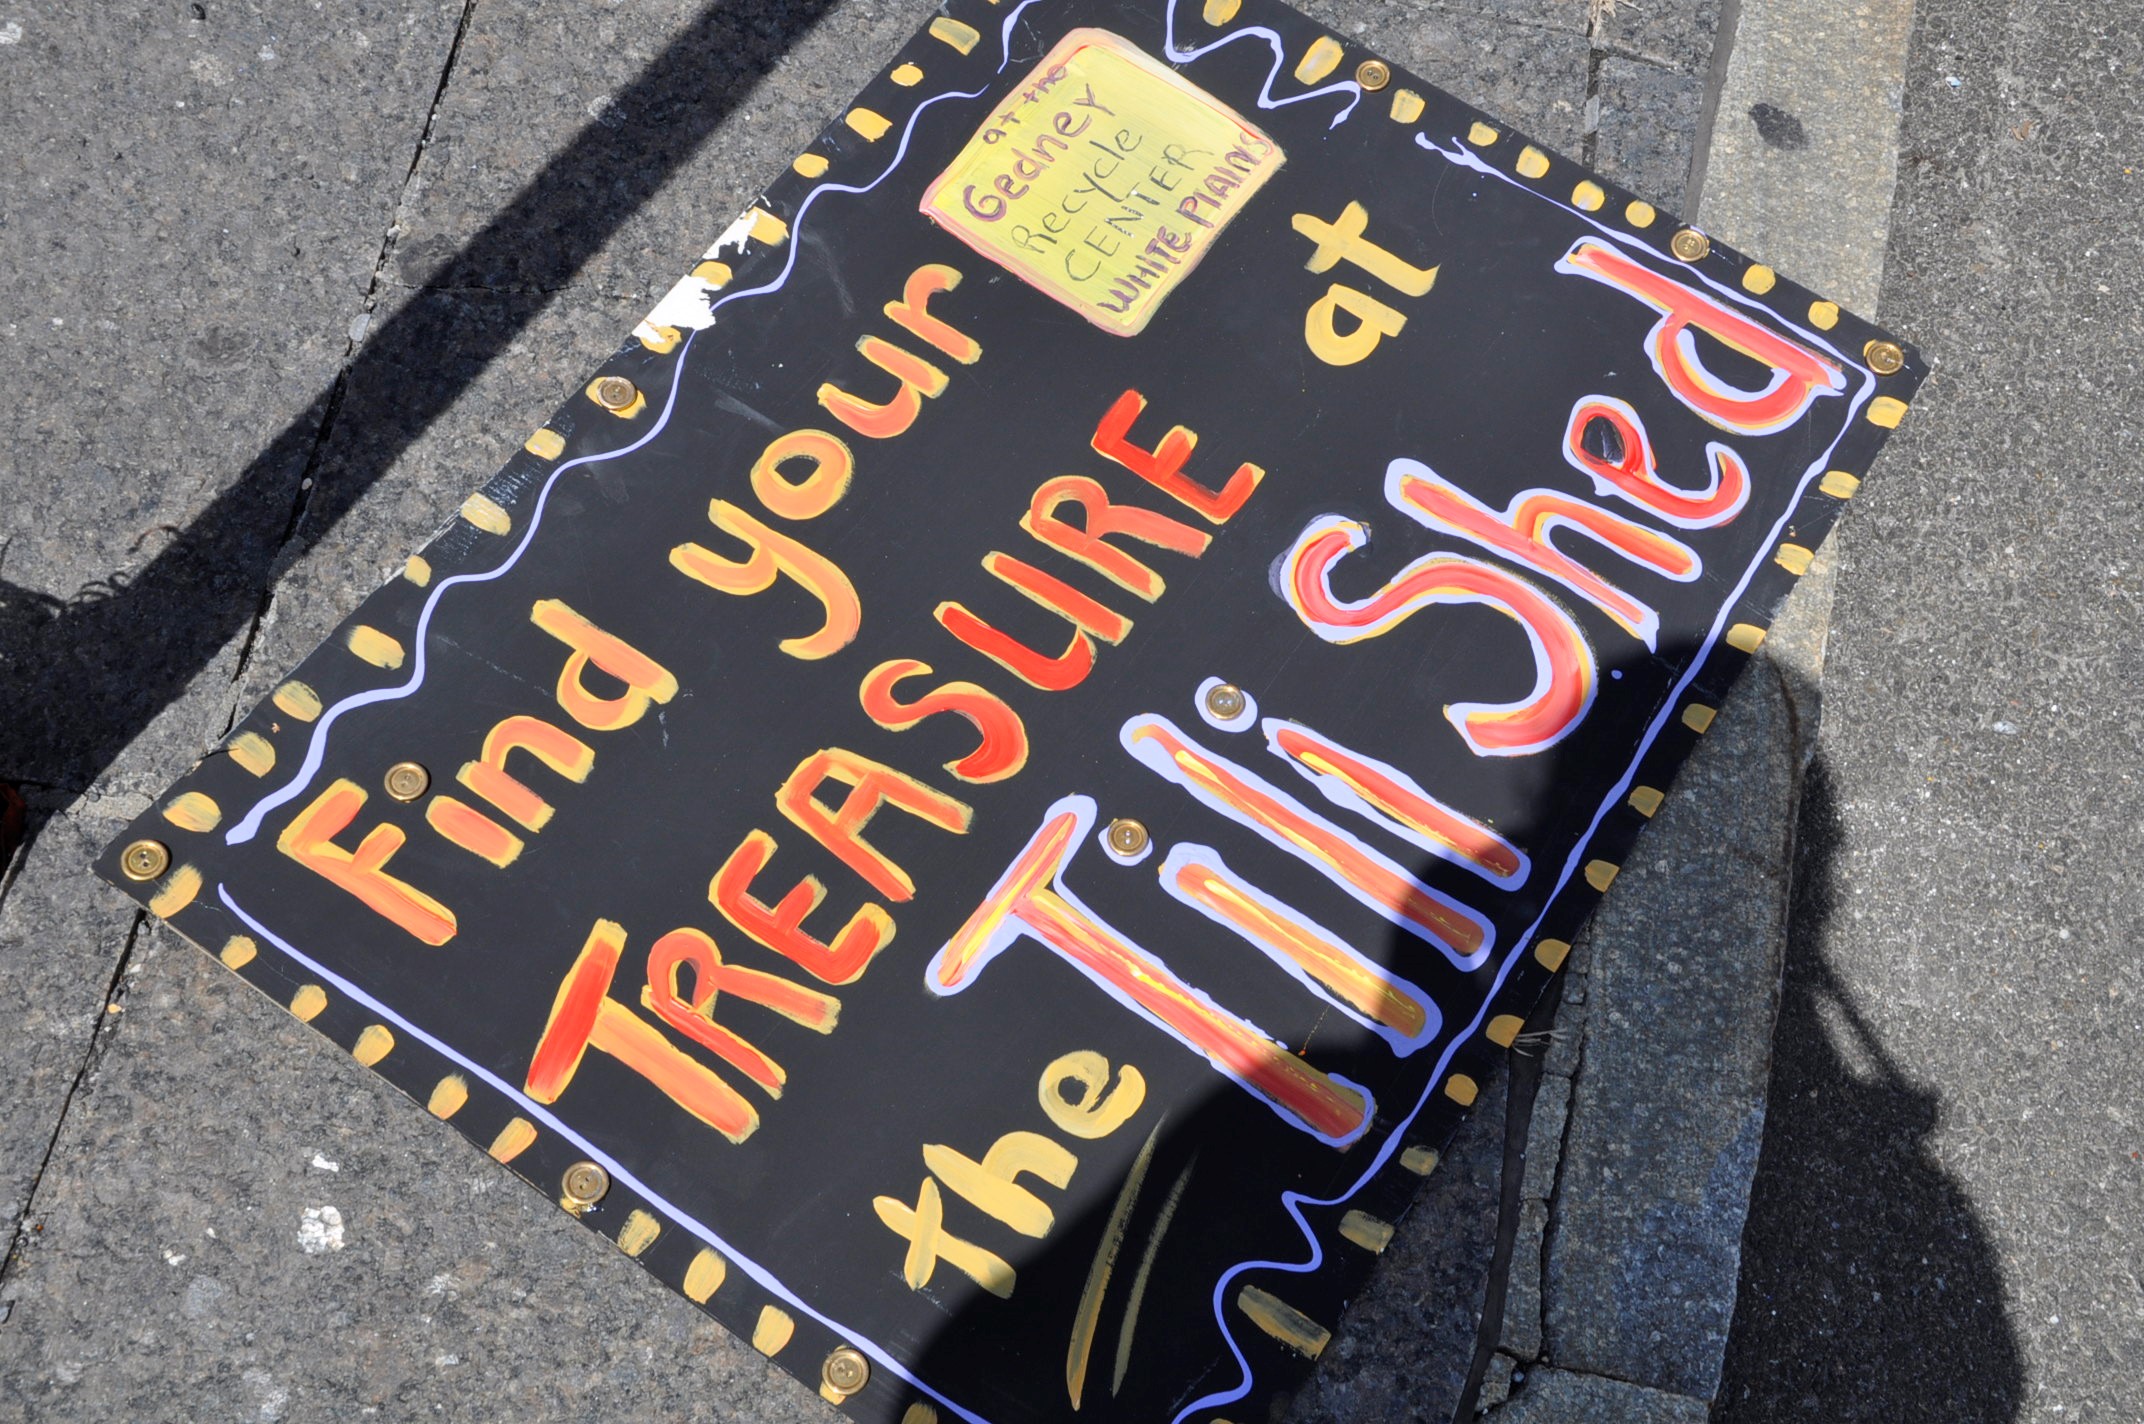 Find your
at the
Gedney
Recycle
CENTER
WHITE PlAINS
TREASURE at
the
Tili Shed